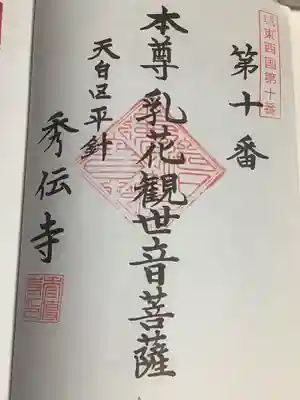 城東西国第十番
第十番
本尊乳花観世音菩薩
天白区平針
秀伝寺